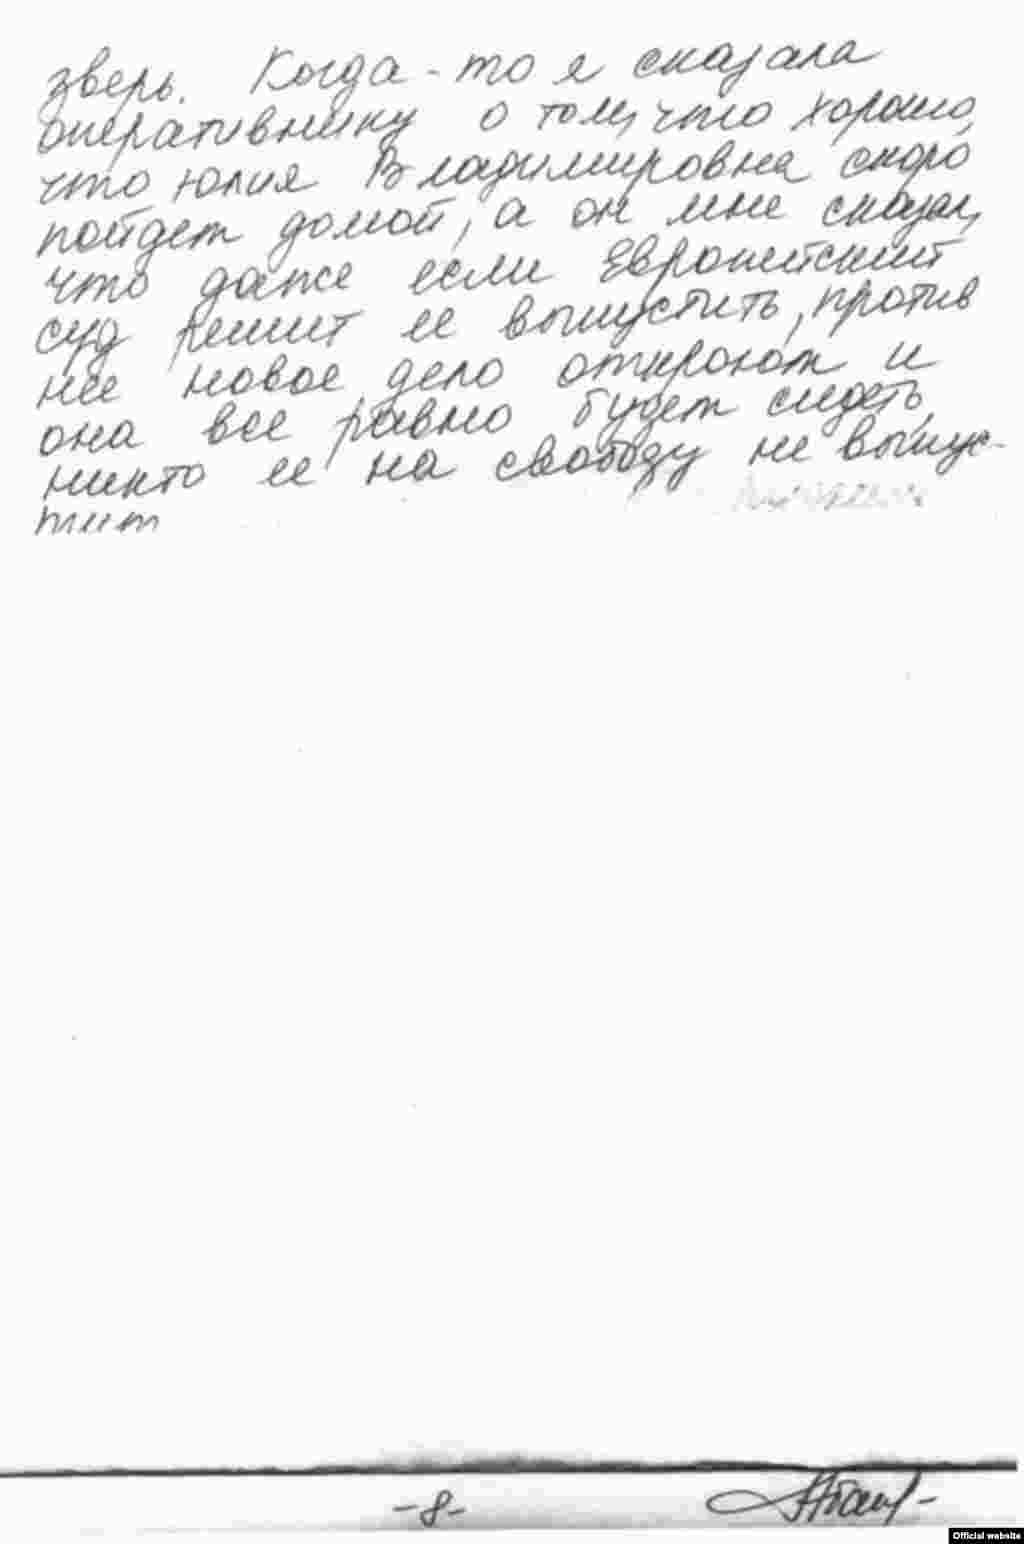 зверь. Когда-то я сказала
оперативнику о том, что хорошо,
что Юлия Владимировна скоро
пойдет домой, а он мне сказал,
что даже если Европейский
суд решит ее выпустить, против
нее новое дело откроют и
она все равно будет сидеть,
никто ее на свободу не выпус-
тит
-8-
Official website